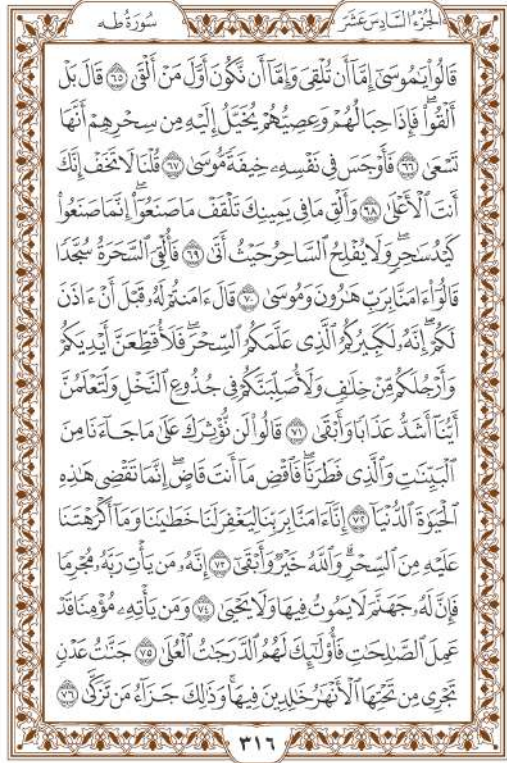 سُورَةُ طه
الجُزْءُ السَّادِسَ عَشَرَ
قَالُوا۟ يَٰمُوسَىٰٓ إِمَّآ أَن تُلْقِىَ وَإِمَّآ أَن نَّكُونَ أَوَّلَ مَنْ أَلْقَىٰ ٦٥ قَالَ بَلْ
أَلْقُوا۟ۖ فَإِذَا حِبَالُهُمْ وَعِصِيُّهُمْ يُخَيَّلُ إِلَيْهِ مِن سِحْرِهِمْ أَنَّهَا
تَسْعَىٰ ٦٦ فَأَوْجَسَ فِى نَفْسِهِۦ خِيفَةً مُّوسَىٰ ٦٧ قُلْنَا لَا تَخَفْ إِنَّكَ
أَنتَ ٱلْأَعْلَىٰ ٦٨ وَأَلْقِ مَا فِى يَمِينِكَ تَلْقَفْ مَا صَنَعُوٓا۟ۖ إِنَّمَا صَنَعُوا۟
كَيْدُ سَٰحِرٍۖ وَلَا يُفْلِحُ ٱلسَّاحِرُ حَيْثُ أَتَىٰ ٦٩ فَأُلْقِىَ ٱلسَّحَرَةُ سُجَّدًا
قَالُوٓا۟ ءَامَنَّا بِرَبِّ هَٰرُونَ وَمُوسَىٰ ٧٠ قَالَ ءَامَنتُمْ لَهُۥ قَبْلَ أَنْ ءَاذَنَ
لَكُمْۖ إِنَّهُۥ لَكَبِيرُكُمُ ٱلَّذِى عَلَّمَكُمُ ٱلسِّحْرَۖ فَلَأُقَطِّعَنَّ أَيْدِيَكُمْ
وَأَرْجُلَكُم مِّنْ خِلَٰفٍ وَلَأُصَلِّبَنَّكُمْ فِى جُذُوعِ ٱلنَّخْلِ وَلَتَعْلَمُنَّ
أَيُّنَآ أَشَدُّ عَذَابًا وَأَبْقَىٰ ٧١ قَالُوا۟ لَن نُّؤْثِرَكَ عَلَىٰ مَا جَآءَنَا مِنَ
ٱلْبَيِّنَٰتِ وَٱلَّذِى فَطَرَنَاۖ فَٱقْضِ مَآ أَنتَ قَاضٍۖ إِنَّمَا تَقْضِى هَٰذِهِ
ٱلْحَيَوٰةَ ٱلدُّنْيَآ ٧٢ إِنَّآ ءَامَنَّا بِرَبِّنَا لِيَغْفِرَ لَنَا خَطَٰيَٰنَا وَمَآ أَكْرَهْتَنَا
عَلَيْهِ مِنَ ٱلسِّحْرِۗ وَٱللَّهُ خَيْرٌ وَأَبْقَىٰٓ ٧٣ إِنَّهُۥ مَن يَأْتِ رَبَّهُۥ مُجْرِمًا
فَإِنَّ لَهُۥ جَهَنَّمَ لَا يَمُوتُ فِيهَا وَلَا يَحْيَىٰ ٧٤ وَمَن يَأْتِهِۦ مُؤْمِنًا قَدْ
عَمِلَ ٱلصَّٰلِحَٰتِ فَأُو۟لَٰٓئِكَ لَهُمُ ٱلدَّرَجَٰتُ ٱلْعُلَىٰ ٧٥ جَنَّٰتُ عَدْنٍ
تَجْرِى مِن تَحْتِهَا ٱلْأَنْهَٰرُ خَٰلِدِينَ فِيهَاۚ وَذَٰلِكَ جَزَآءُ مَن تَزَكَّىٰ ٧٦
٣١٦